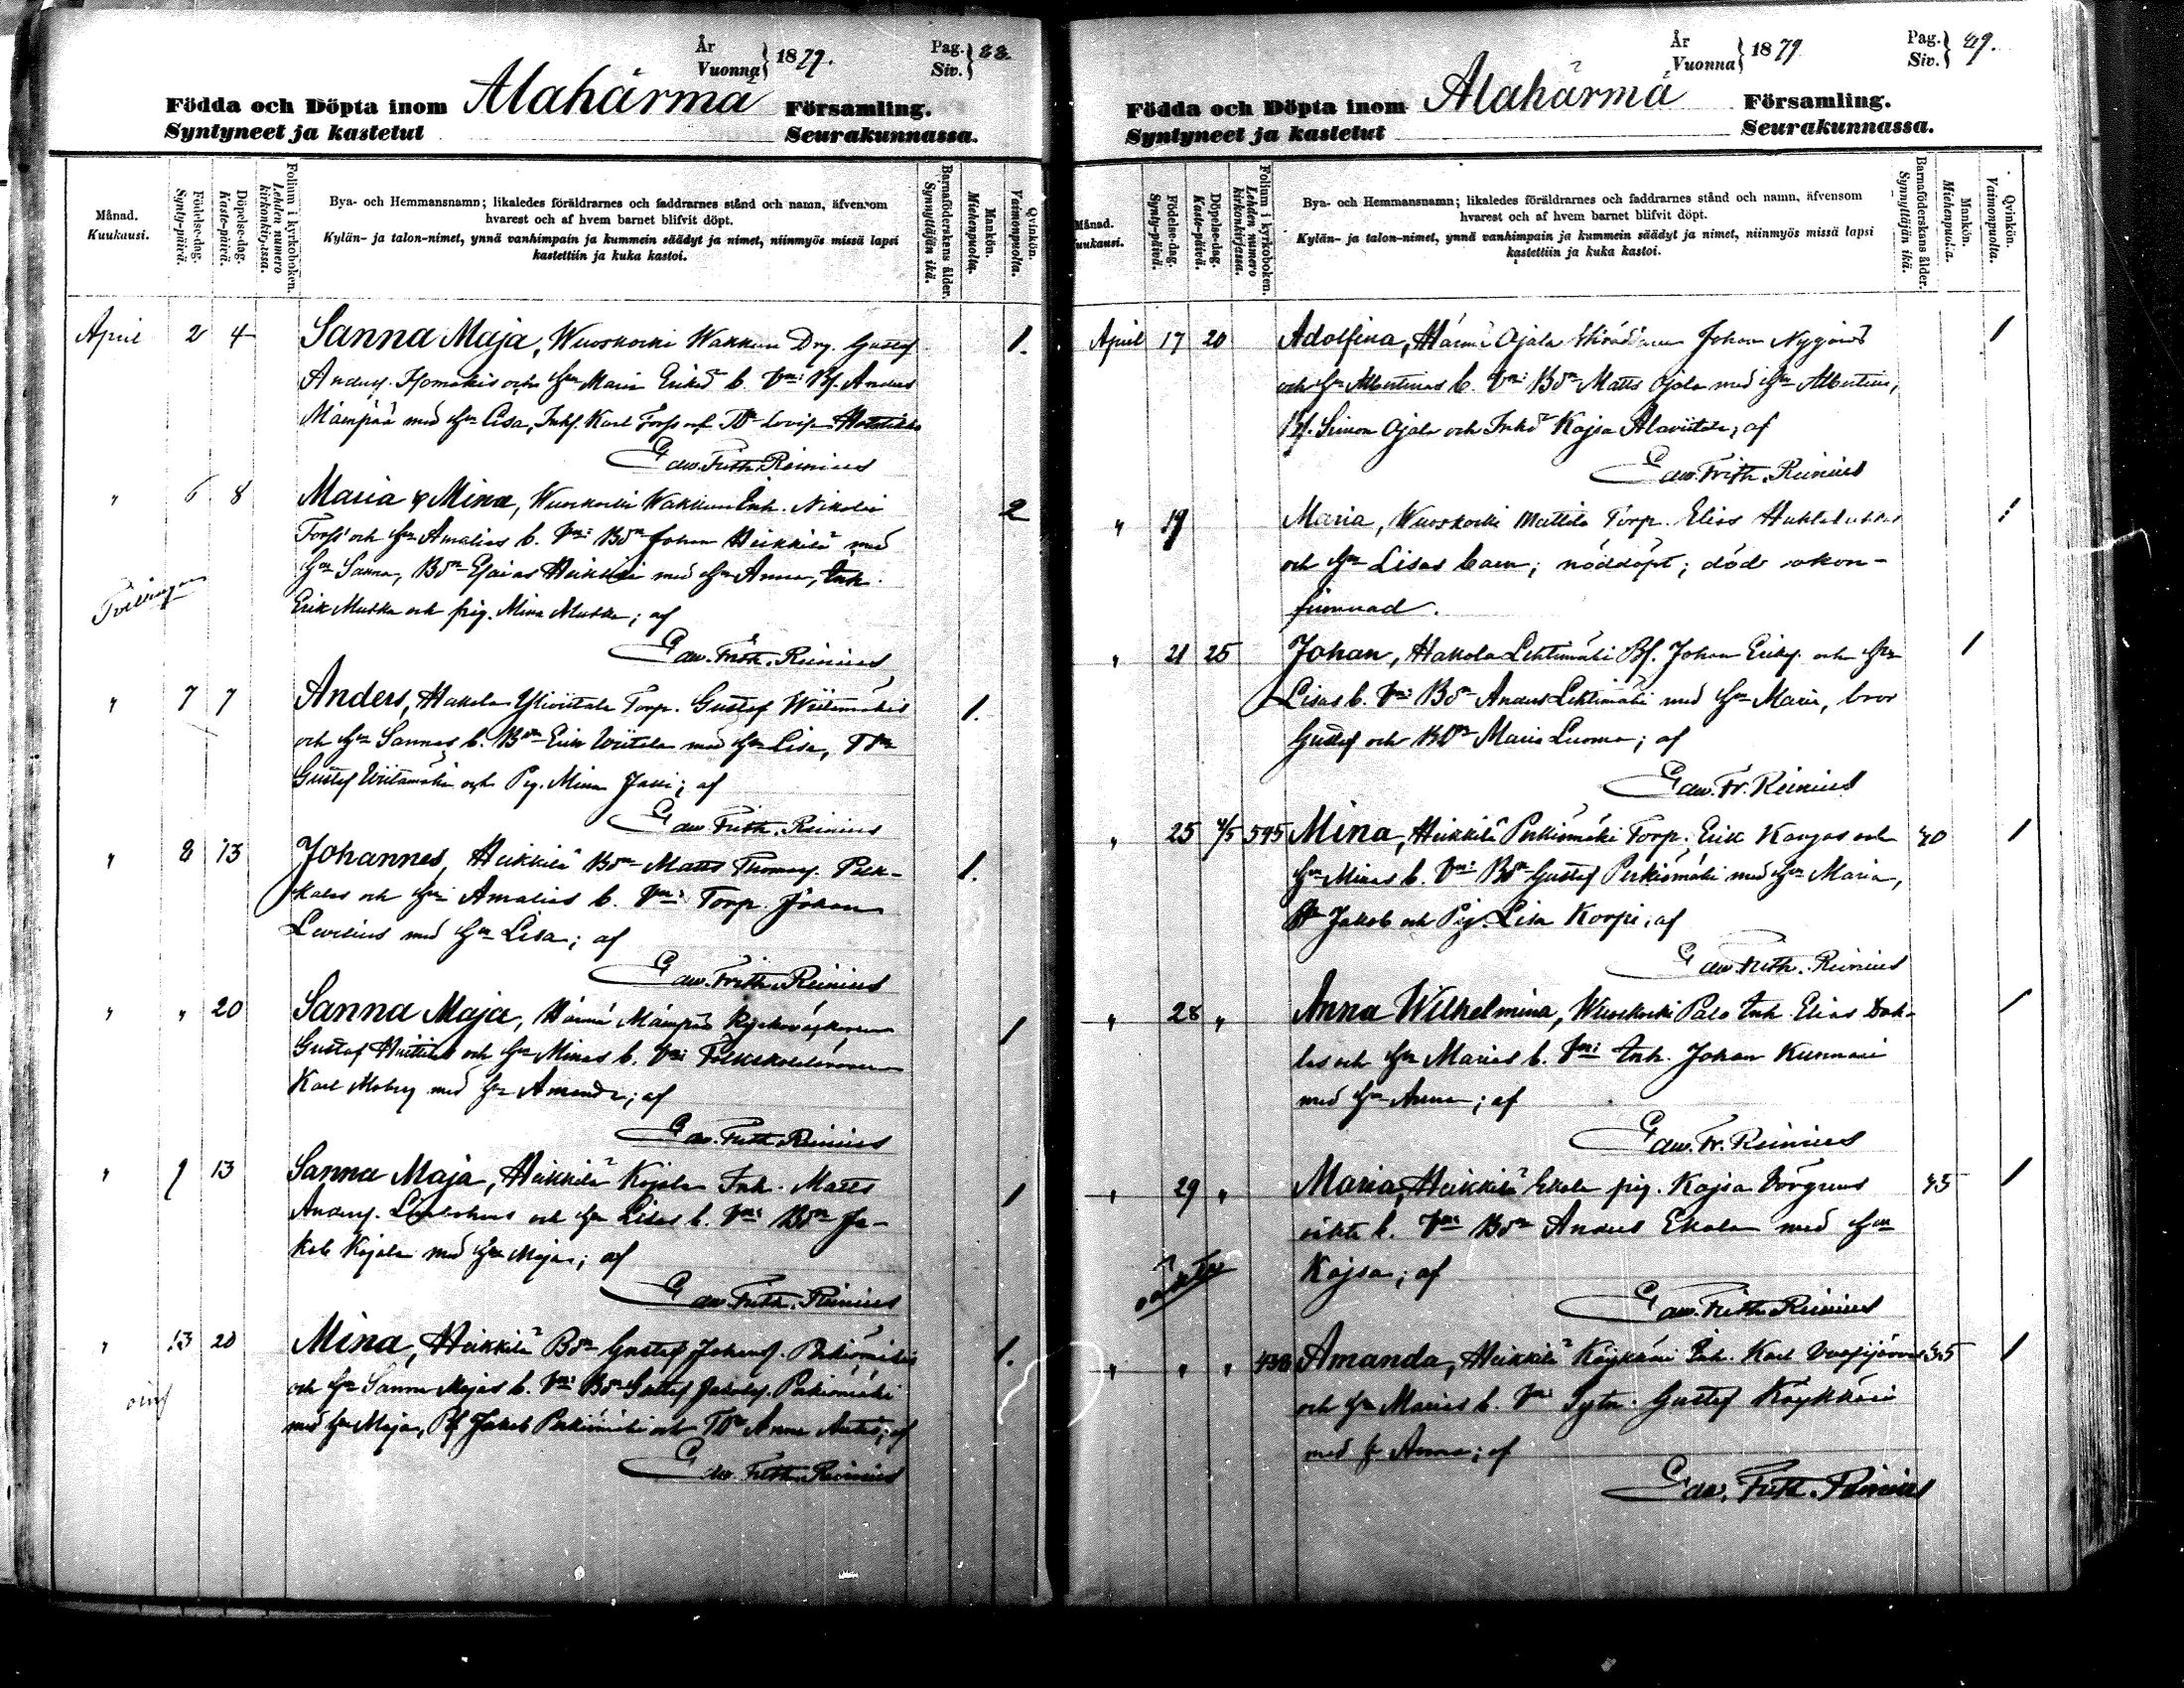 År
Vuonna } 1879.
Pag.
Siv. } 88.
Födda och Döpta inom Alahärmä Församling.
Syntyneet ja kastetut Seurakunnassa.
Månad.
Kuukausi.
Födelse-dag.
Synty-päivä.
Döpelse-dag.
Kaste-päivä.
Folium i kyrkoboken.
Lehden numero
kirkonkirjassa.
Bya- och Hemmansnamn; likaledes föräldrarnes och faddrarnes stånd och namn, äfvensom
hvarest och af hvem barnet blifvit döpt.
Kylän- ja talon-nimet, ynnä vanhimpain ja kummein säädyt ja nimet, niinmyös missä lapsi
kastettiin ja kuka kastoi.
Barnaföderskans ålder.
Synnyttäjän ikä.
Mankön.
Miehenpuolta.
Qvinkön.
Vaimonpuolta.
April 2 4 Sanna Maja, Wuoskoski Wakkuri Drg. Gustaf 1.
och Hu Maria b. Vni: Bf. Anders
Mämpää med Hu Lisa, Inh. Karl Forss och
Edw. Frith. Reinius
" 6 8 Maria & Mina, Wuoskoski Wakkuri Inh. Nikolai 2
Forss och Hu Amalias b. Vni: Bdn Johan Heikkilä med
Hu Sanna, Bdn Esaias Heikkilä med Hu Anna, Inh.
Tvillingar
Erik Mutka och pig. Mina Mutka; af
Edw. Frith. Reinius
" 7 7 Anders, Hakola Yliviitala Torp. Gustaf Wiitamäkis 1.
och Hu Sannas b. Bdn Erik Wiitala med Hu Lisa,
Gustaf Wiitamäki och Pig. Mina; af
Edw. Frith. Reinius
" 8 13 Johannes, Heikkilä Bdn Matts Thomass. Pelk- 1.
kalas och Hu Amalias b. Vni: Torp. Johan
med Hu Lisa; af
Edw. Frith. Reinius
" " 20 Sanna Maja, Härmä Mämpää Kyrkoväktaren 1
Gustaf och Hu Minas b. Vni: Folkskoleläraren
Karl Moberg med Hu Amanda; af
Edw. Frith. Reinius
" 9 13 Sanna Maja, Heikkilä Kojola Inh. Matts 1
Anderss. och Hu Lisas b. Vni: Bdn Ja-
kob Kojola med Hu Maja; af
Edw. Frith. Reinius
" 13 20 Mina, Heikkilä Bdn Gustaf Johanss. Perkiömäkis 1.
och Hu Sanna Majas b. Vni: Bdn Gustaf Jakobss. Perkiömäki
med Hu Maja, Bf Jakob Perkiömäki och Anna; af
Edw. Frith. Reinius
År
Vuonna } 1879
Pag.
Siv. } 89.
Födda och Döpta inom Alahärmä Församling.
Syntyneet ja kastetut Seurakunnassa.
Månad.
Kuukausi.
Födelse-dag.
Synty-päivä.
Döpelse-dag.
Kaste-päivä.
Folium i kyrkoboken.
Lehden numero
kirkonkirjassa.
Bya- och Hemmansnamn; likaledes föräldrarnes och faddrarnes stånd och namn, äfvensom
hvarest och af hvem barnet blifvit döpt.
Kylän- ja talon-nimet, ynnä vanhimpain ja kummein säädyt ja nimet, niinmyös missä lapsi
kastettiin ja kuka kastoi.
Barnaföderskans ålder.
Synnyttäjän ikä.
Mankön.
Miehenpuolta.
Qvinkön.
Vaimonpuolta.
April 17 20 Adolfina, Härmä Ojala Johan Nygård 1
och Hu Albertinas b. Vni: Bdn Matts Ojala med Hu Albertina,
Bf. Simon Ojala och Kajsa Alaviitala; af
Edw. Frith. Reinius
" 19 Maria, Wuoskoski Mattila Torp. Elias 1
och Hu Lisas barn; nöddöpt; död okon-
firmerad.
" 21 25 Johan, Hakola Lehtimäki Bf. Johan Erikss. och Hu 1
Lisas b. Vni: Bdn Anders Lehtimäki med Hu Maria, bror
Gustaf och Maria Luoma; af
Edw. Fr. Reinius
" 25 4/5 595 Mina, Heikkilä Perkiömäki Torp. Erik Kangas och 40 1
Hu Minas b. Vni: Bdn Gustaf Perkiömäki med Hu Maria,
Jakob och Pig. Lisa Korpi, af
Edw. Frith. Reinius
" 28 " Anna Wilhelmina, Wuoskoski Palo Inh. Elias 1
och Hu Marias b. Vni: Inh. Johan Kunnari
med Hu Anna; af
Edw. Fr. Reinius
" 29 " Maria, Heikkilä Ekola pig. Kajsa 45 1
oäkta b. Vni: Bdn Anders Ekola med Hu
oäkta
Kajsa; af
Edw. Frith. Reinius
" " " Amanda, Heikkilä Köykkäri Inh. Karl 35 1
och Hu Marias b. Vni: Sytn. Gustaf Köykkäri
med h Anna; af
Edw. Frith. Reinius